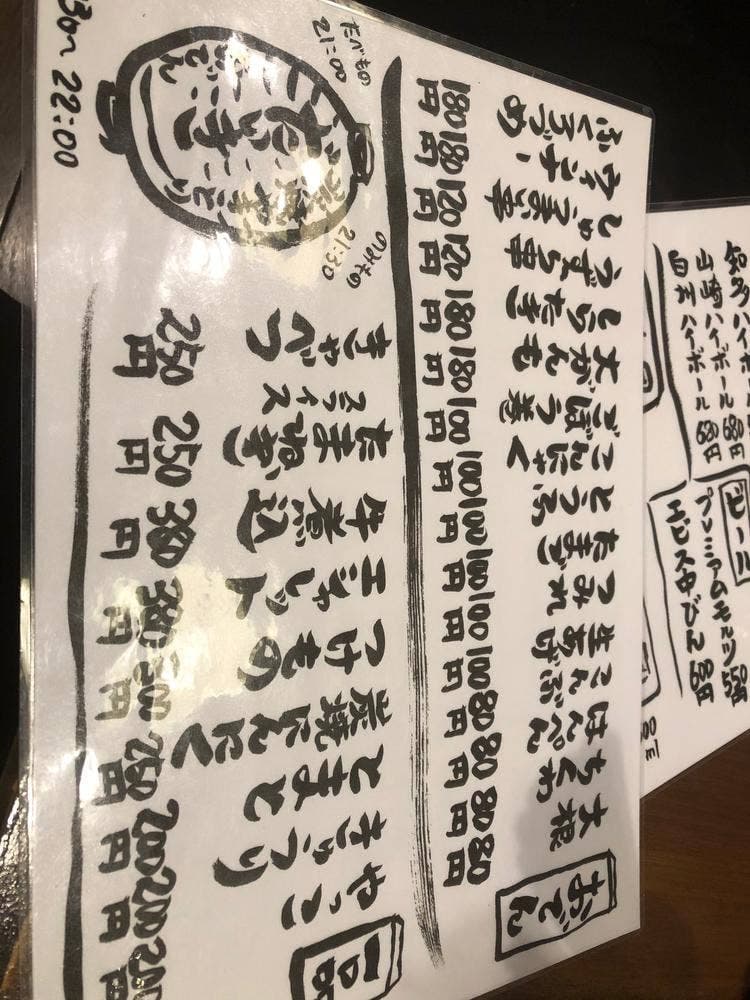 おでん
大根 80円
ちくわ 80円
はんぺん 80円
こんぶ 80円
生あげ 100円
つみれ 100円
たまご 100円
とうふ 100円
こんにゃく 100円
ごぼう巻 100円
大がんも 180円
しらたき 180円
うずら串 120円
しゅうまい串 120円
ウインナー 180円
ふくろづめ 180円
一品
やっこ 200円
きゅうり 200円
とまと 200円
炭焼にんにく 250円
つけもの
エシャレット 380円
牛煮込 380円
たまねぎスライス 250円
きゃべつ 250円
のみもの
21:30
たべもの
21:00
30〜22:00
知多ハイボール
山崎ハイボール 680円
白州ハイボール 680円
ビール
プレミアムモルツ 550円
エビス中びん 680円